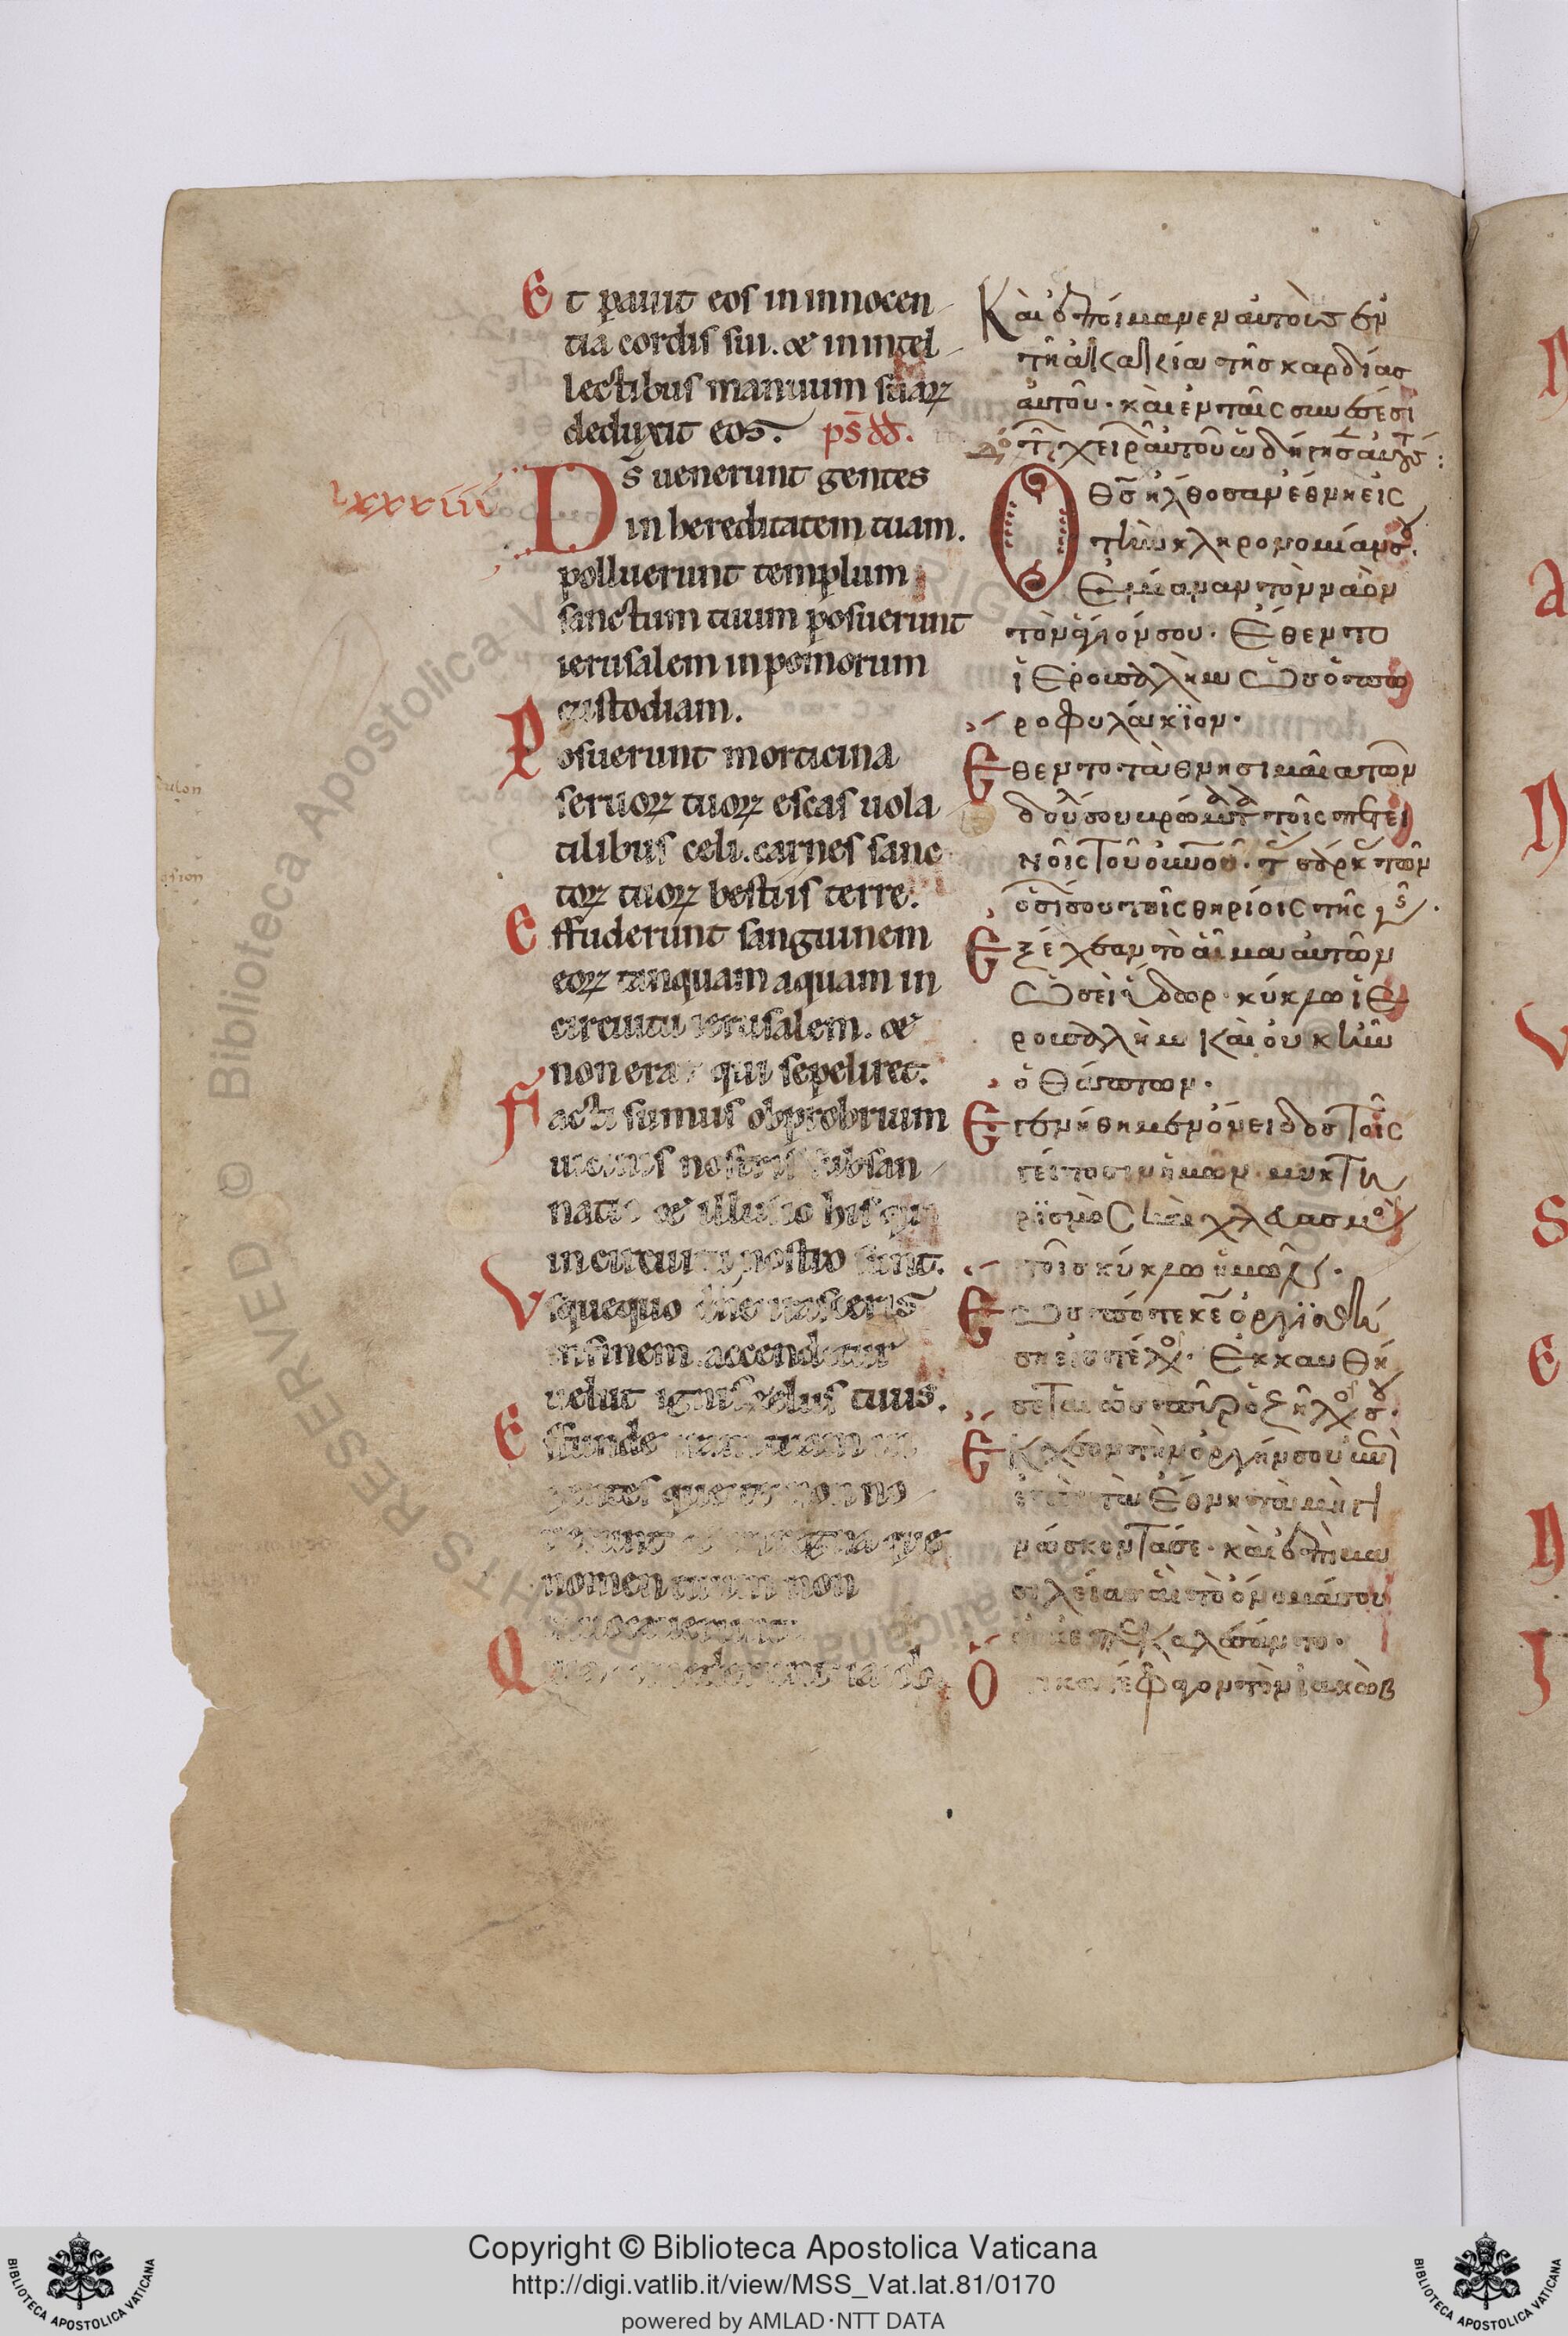 Et pauit eos in innocen
tia cordis sui. & in intel
lectibus manuum suaꝝ
deduxit eos. ps̄ dd.
lxxviii
Ds̄ uenerunt gentes
in hereditatem tuam.
polluerunt templum
sanctum tuum posuerunt
ierusalem in pomorum
custodiam.
Posuerunt morticina
seruoꝝ tuoꝝ escas uola
tilibus celi. carnes sanc
toꝝ tuoꝝ bestiis terre.
Effuderunt sanguinem
eoꝝ tanquam aquam in
circuitu ierusalem. &
non erat qui sepeliret.
Facti sumus obprobrium
uicinis nostris subsan
natio & illusio his qui
in circuitu nostro sunt.
Vsquequo dn̄e irasceris
in finem. accendetur
uelut ignis zelus tuus.
Effunde iram tuam in
gentes que te non no
uerunt & in regna que
nomen tuum non
inuocauerunt.
Q comederunt iacob
Κὰι ἐποίμανεν αὐτοὺσ ἐν
τῆ ἀκακεία τῆσ καρδίασ
ἀυτοῦ. κὰι ἐν ταῖς συνέσεσι
χειρ ἀυτοῦ ὡδήγησ
Ο θσ ἤλθοσαν ἔθνη εἰς
τὴν κληρονομίαν σ.
Ἐμίαναν τὸν ναὸν
τὸν ἅγιόν σου. Ἔθεντο
ἱΕρουσαλὴμ Ὡσ ὀπω
ροφυλάκϊον.
Εθεντο τὰ θνησιμαῖα τῶν
δούλ σου βρώματ τοῖς πετει
νοῖς Τοῦ οὐνοῦ. τ σάρκ τῶν
ὁσί σου τοῖς θηρίοις τῆς γ.
Εξέχεαν τὸ αἷμα αὐτῶν
Ὡσεὶ ὕδωρ. κύκλω ἱΕ
ρουσαλὴμ Κὰι ὀυκ ἦν
ὁ Θάπτων.
Εγενήθημεν ὄνειδοσ Τοῖς
γείτοσιν ἡμῶν. μυκΤη
ρϊσμὸς κὰι χλευασμὸσ
τοῖσ κύκλω ἡμῶν.
Εωσ πότε κε ὀργϊσθή
ση εἰσ τέλοσ. ἘκκαυΘή
σεΤαι ὡσ πῦρ ὁ ζῆλοσ σ.
Εκχεον τὴν ὀργήν σου
ἐπὶ τὰ Ἔθνη τὰ μὴ γι
νώσκονΤά σε. κὰι ἐπὶ βα
σιλείασ ἁι τὸ ὄνομά σου
ὀυκ ἐπεκαλέσαντο.
Ο κατέφαγον τὸν ἰακὼβ
RESERVED © Biblioteca Apostolica Vaticana
Copyright © Biblioteca Apostolica Vaticana
http://digi.vatlib.it/view/MSS_Vat.lat.81/0170
powered by AMLAD·NTT DATA
BIBLIOTECA APOSTOLICA VATICANA
BIBLIOTECA APOSTOLICA VATICANA